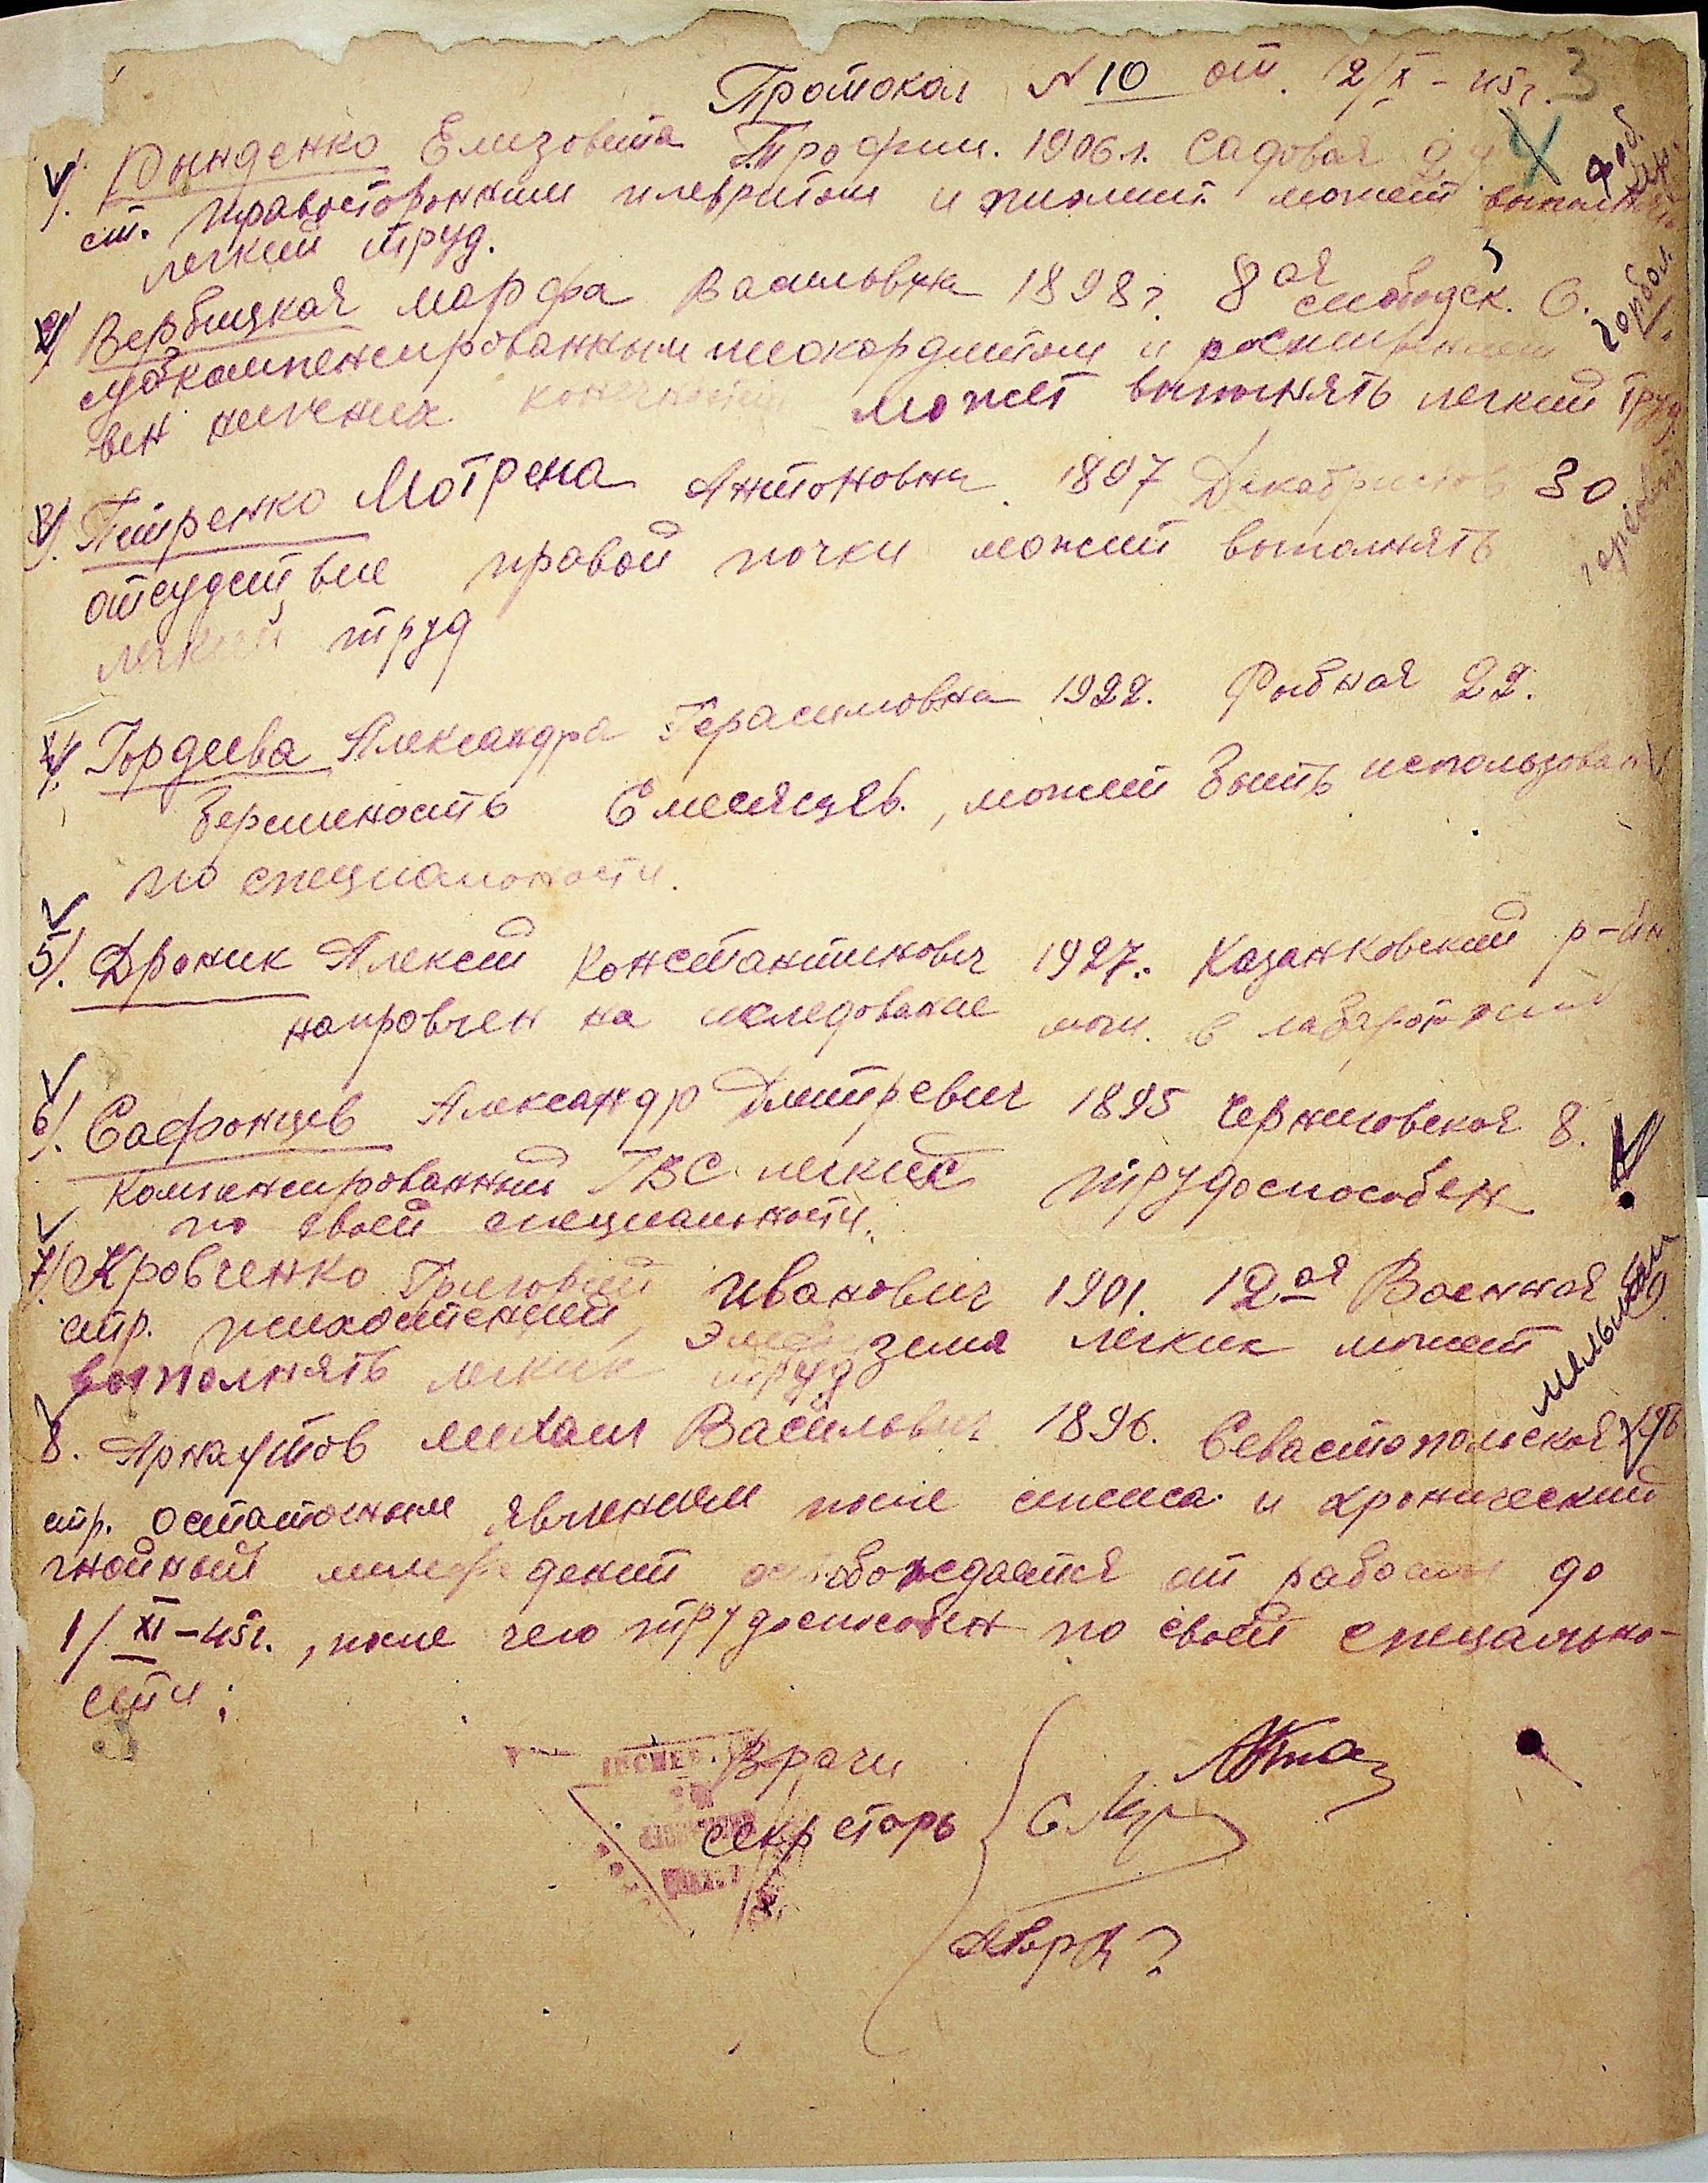 Протокол № 10 от 2/X-45г. 3
1). Рынденко Елизовета Трофим. 1906г. Садовая
ст. правосторонним плевритом и может выполнять
легкий труд.
2) Вербицкая Марфа Васильвна 1898г. 8ая слободск. 6.
субкомпенсированным миокордитом и росширением
вен нижних конечностей может выполнять легкий труд.
3). Петренко Мотрена Антоновна 1897 Декабристов 30
отсудствие правой почки может выполнять
легкий труд
4). Гордеева Александра Герасимовна 1922. Рыбная 22.
беременость 6 месяцев., может быть использована
по специальности.
5). Дроник Алексей Константинович 1927. Казанковский р-йн
напровлен на иследование в
6). Сафонцев Александр Дмитревич 1895 Черниговская 8.
Компенсированный ТВС легких трудоспособен
по своей специальности.
7) Кровченко Григорий Иванович 1901. 12ая Военная
стр. зема легких может
выполнять легкий труд
8. Арнаутов Михаил Васильевич 1896. Севастопольская
стр. остаточным явлением после и хронический
гнойный освобождается от работы до
1/XI-45г., после чего трудоспособен по своей спецально-
сти;
Врачи
Секретарь